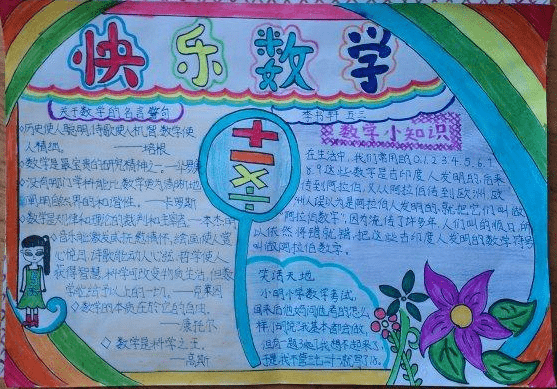 快乐数学
关于数学的名言警句
李书轩 五三
◇历史使人聪明,诗歌使人机智,数学使
人精细。 ——培根
◇数学是最宝贵的研究精神之一。—华罗庚
◇没有哪门学科能比数学更为清晰地
阐明自然界的和谐性。 ——卡罗斯
◇数学是规律和理论的裁判和主宰者——本杰明
◇音乐能激发或抚慰情怀,绘画使人赏
心悦目,诗歌能动人心弦,哲学使人
获得智慧,科学可改变物质生活,但数
学能给予以上的一切。——克莱因
◇数学的本质在於它的自由。
——康托尔
◇数学是科学之王。
——高斯
数学小知识
在生活中,我们常用的0.1.2.3.4.5.6.7
.8.9这些数字是古印度人发明的,后来
传到阿拉伯,又从阿拉伯传到欧洲,欧
洲人误以为是阿拉伯人发明的,就把它们叫做
“阿拉伯数字”,因为流传了许多年,人们叫的顺口,所
以依然将错就错,把这些古印度人发明的数字符号
叫做阿拉伯数字。
+
−
×÷
=
笑话天地
小明小学数学考试,
回来后他妈问他考的怎么
样,他说:我基本都会做,
但有一题3乘7我想不起来了,
于是我不管三七二十一就写了18。